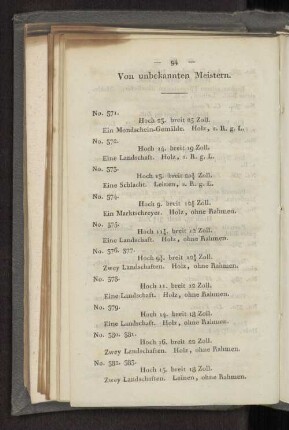 — 94 —
Von unbekannten Meistern.
No. 571.
Hoch 25. breit 25 Zoll.
Ein Mondschein-Gemälde. Holz, s. R. g. L.
No. 572.
Hoch 15. breit 19 Zoll.
Eine Landschaft. Holz, s. R. g. L.
No. 573.
Hoch 15. breit 20½ Zoll.
Eine Schlacht. Leinen, s. R. g. L.
No. 574.
Hoch 9. breit Zoll.
Ein Marktschreyer. Holz, ohne Rahmen.
No. 575.
Hoch breit 15 Zoll.
Eine Landschaft. Holz, ohne Rahmen.
No. 576. 577.
Hoch breit Zoll.
Zwey Landschaften. Holz, ohne Rahmen.
No. 578.
Hoch 11. breit 12 Zoll.
Eine Landschaft. Holz, ohne Rahmen.
No. 579.
Hoch 14. breit 18 Zoll.
Eine Landschaft. Holz, ohne Rahmen.
No. 580. 581.
Hoch 16. breit 22 Zoll.
Zwey Landschaften. Holz, ohne Rahmen.
No. 582. 583.
Hoch 15. breit 18 Zoll.
Zwey Landschaften. Leinen, ohne Rahmen.